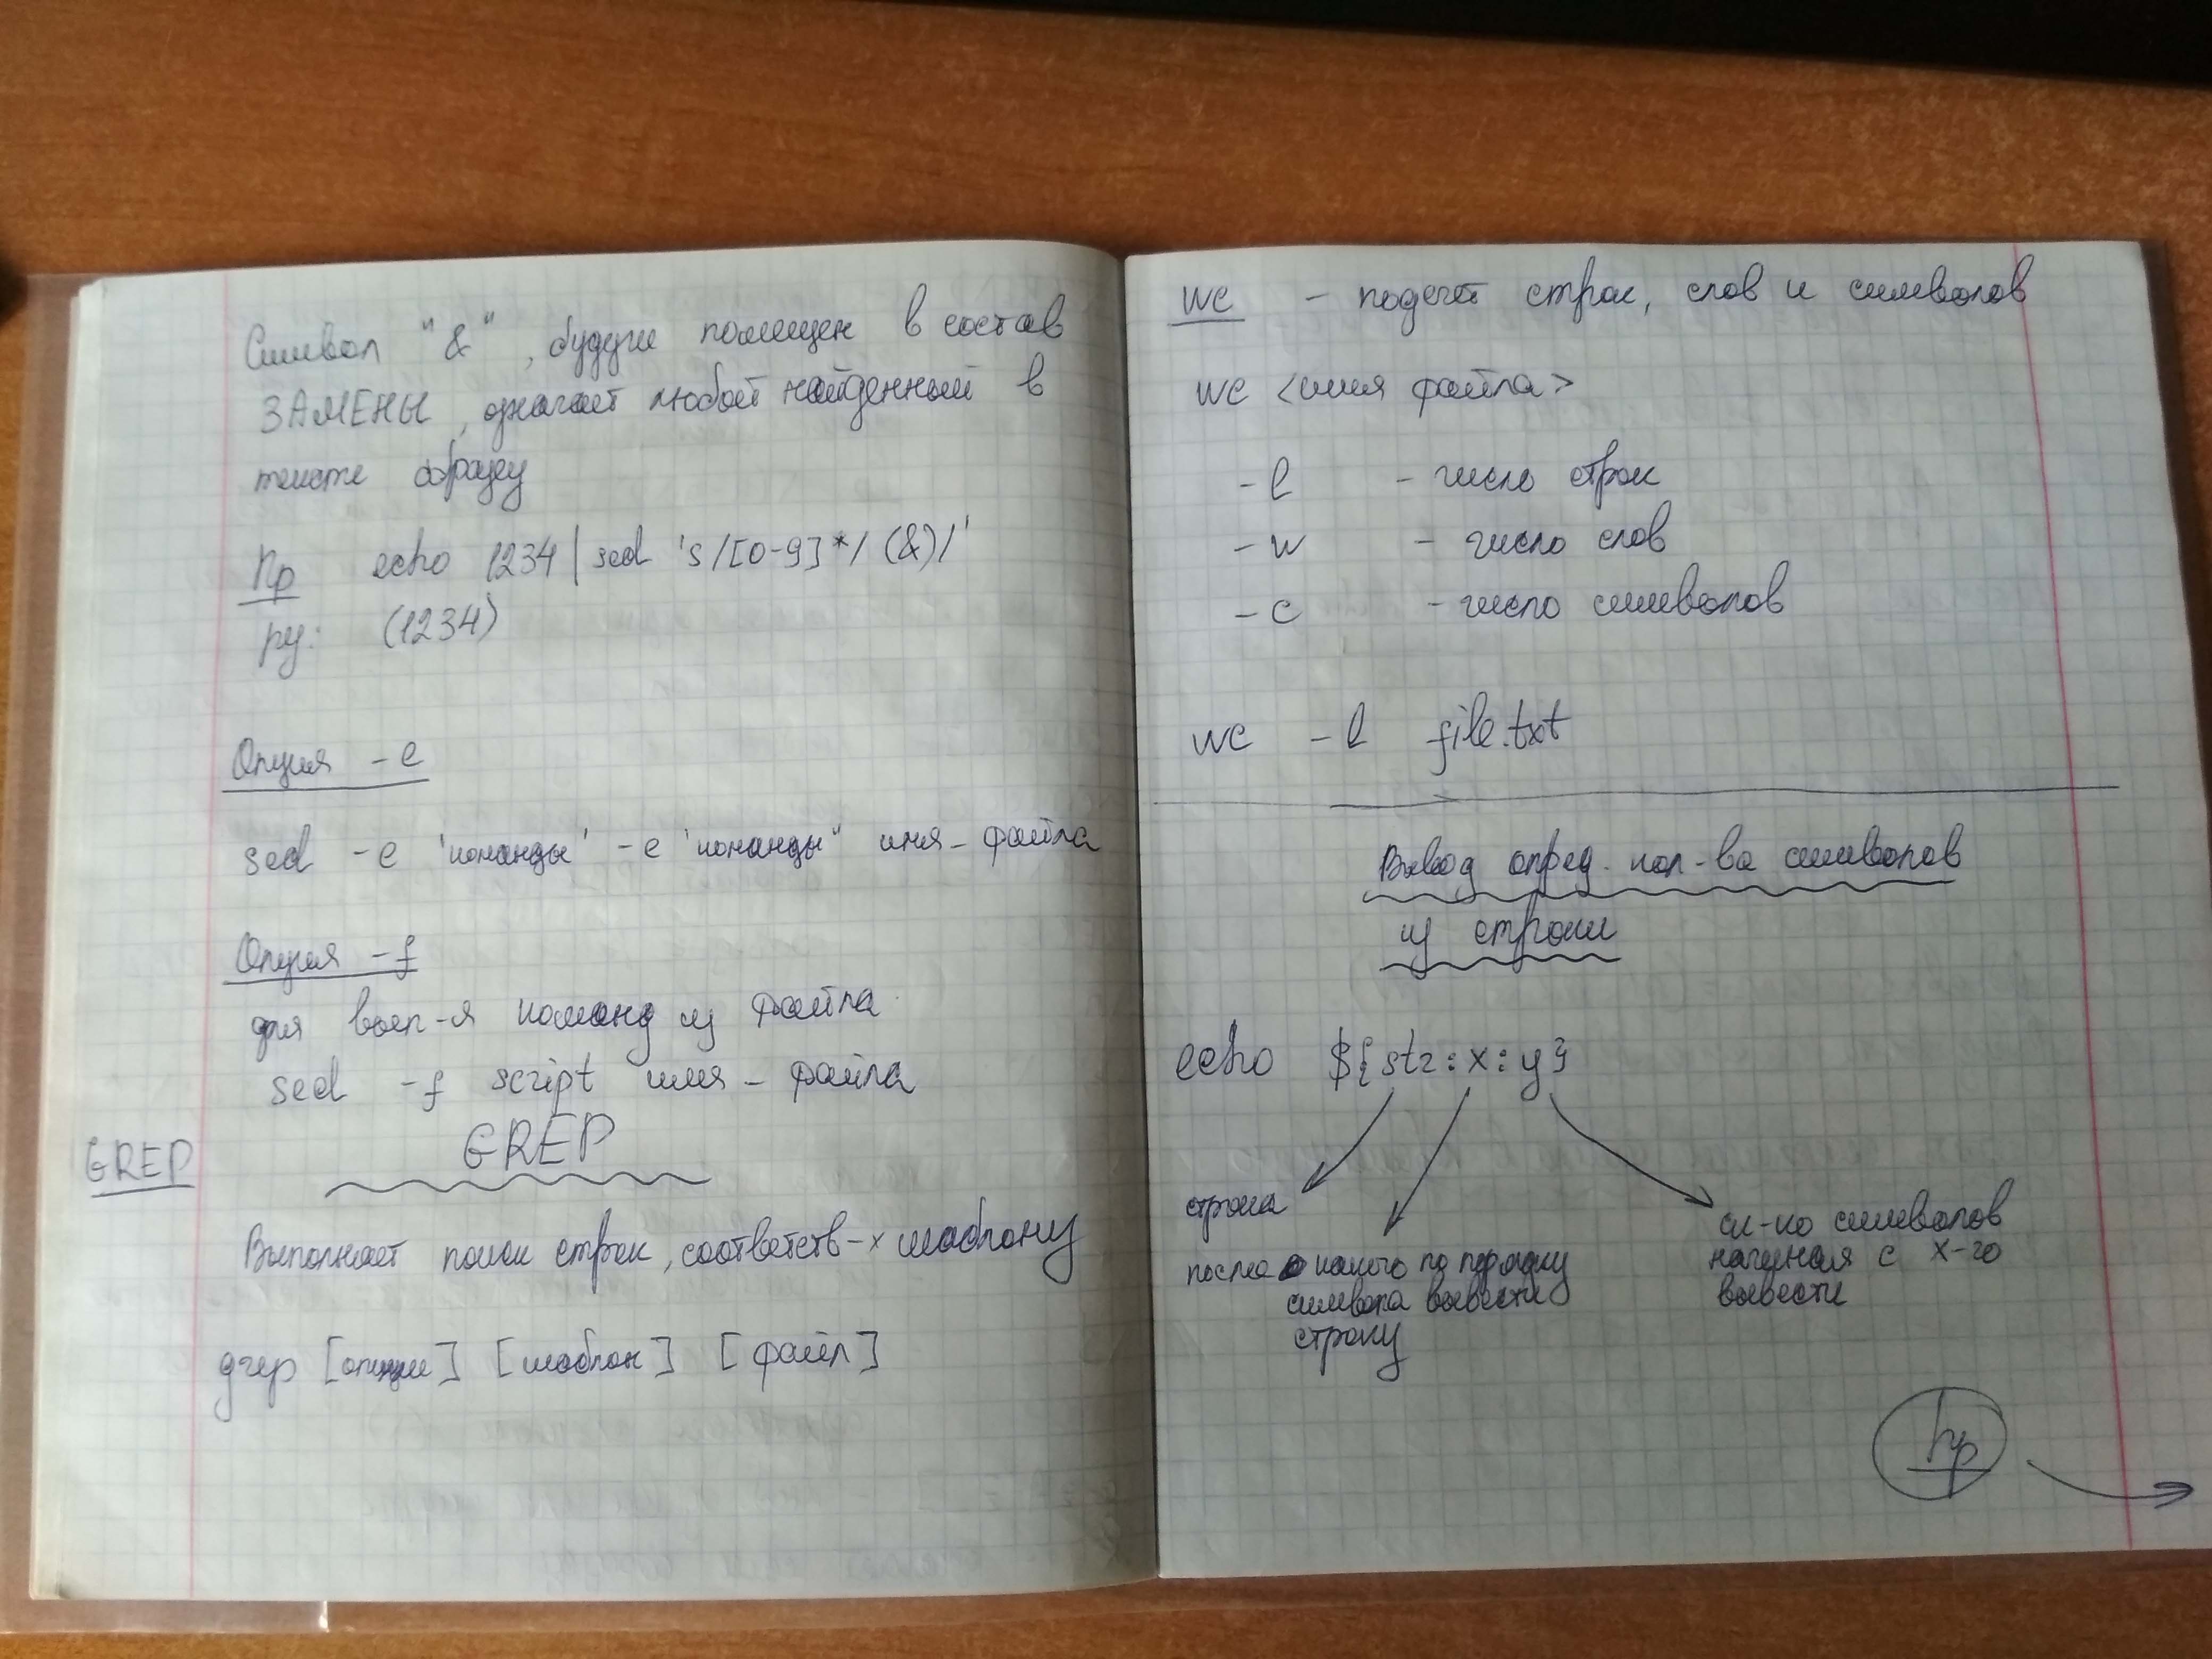 Символ "&", будучи помещен в состав
ЗАМЕНЫ, означает любой найденный в
тексте образцу
Пр echo 1234 | sed 's/[0-9]*/(&)/'
рез: (1234)
Опция -e
sed -e 'команды' -e 'команды" имя-файла
Опция -f
для вып-я команд из файла
sed -f script имя-файла
GREP
GREP
Выполняет поиск строк, соответств-х шаблону
grep [опции] [шаблон] [файл]
wc - подсчет строк, слов и символов
wc <имя файла>
-l - число строк
-w - число слов
-c - число символов
wc -l file.txt
Вывод опред. кол-ва символов
из строки
echo ${str:x:y}
строка
после какого по порядку
символа вывести
строку
ск-ко символов
начиная с x-го
вывести
Пр